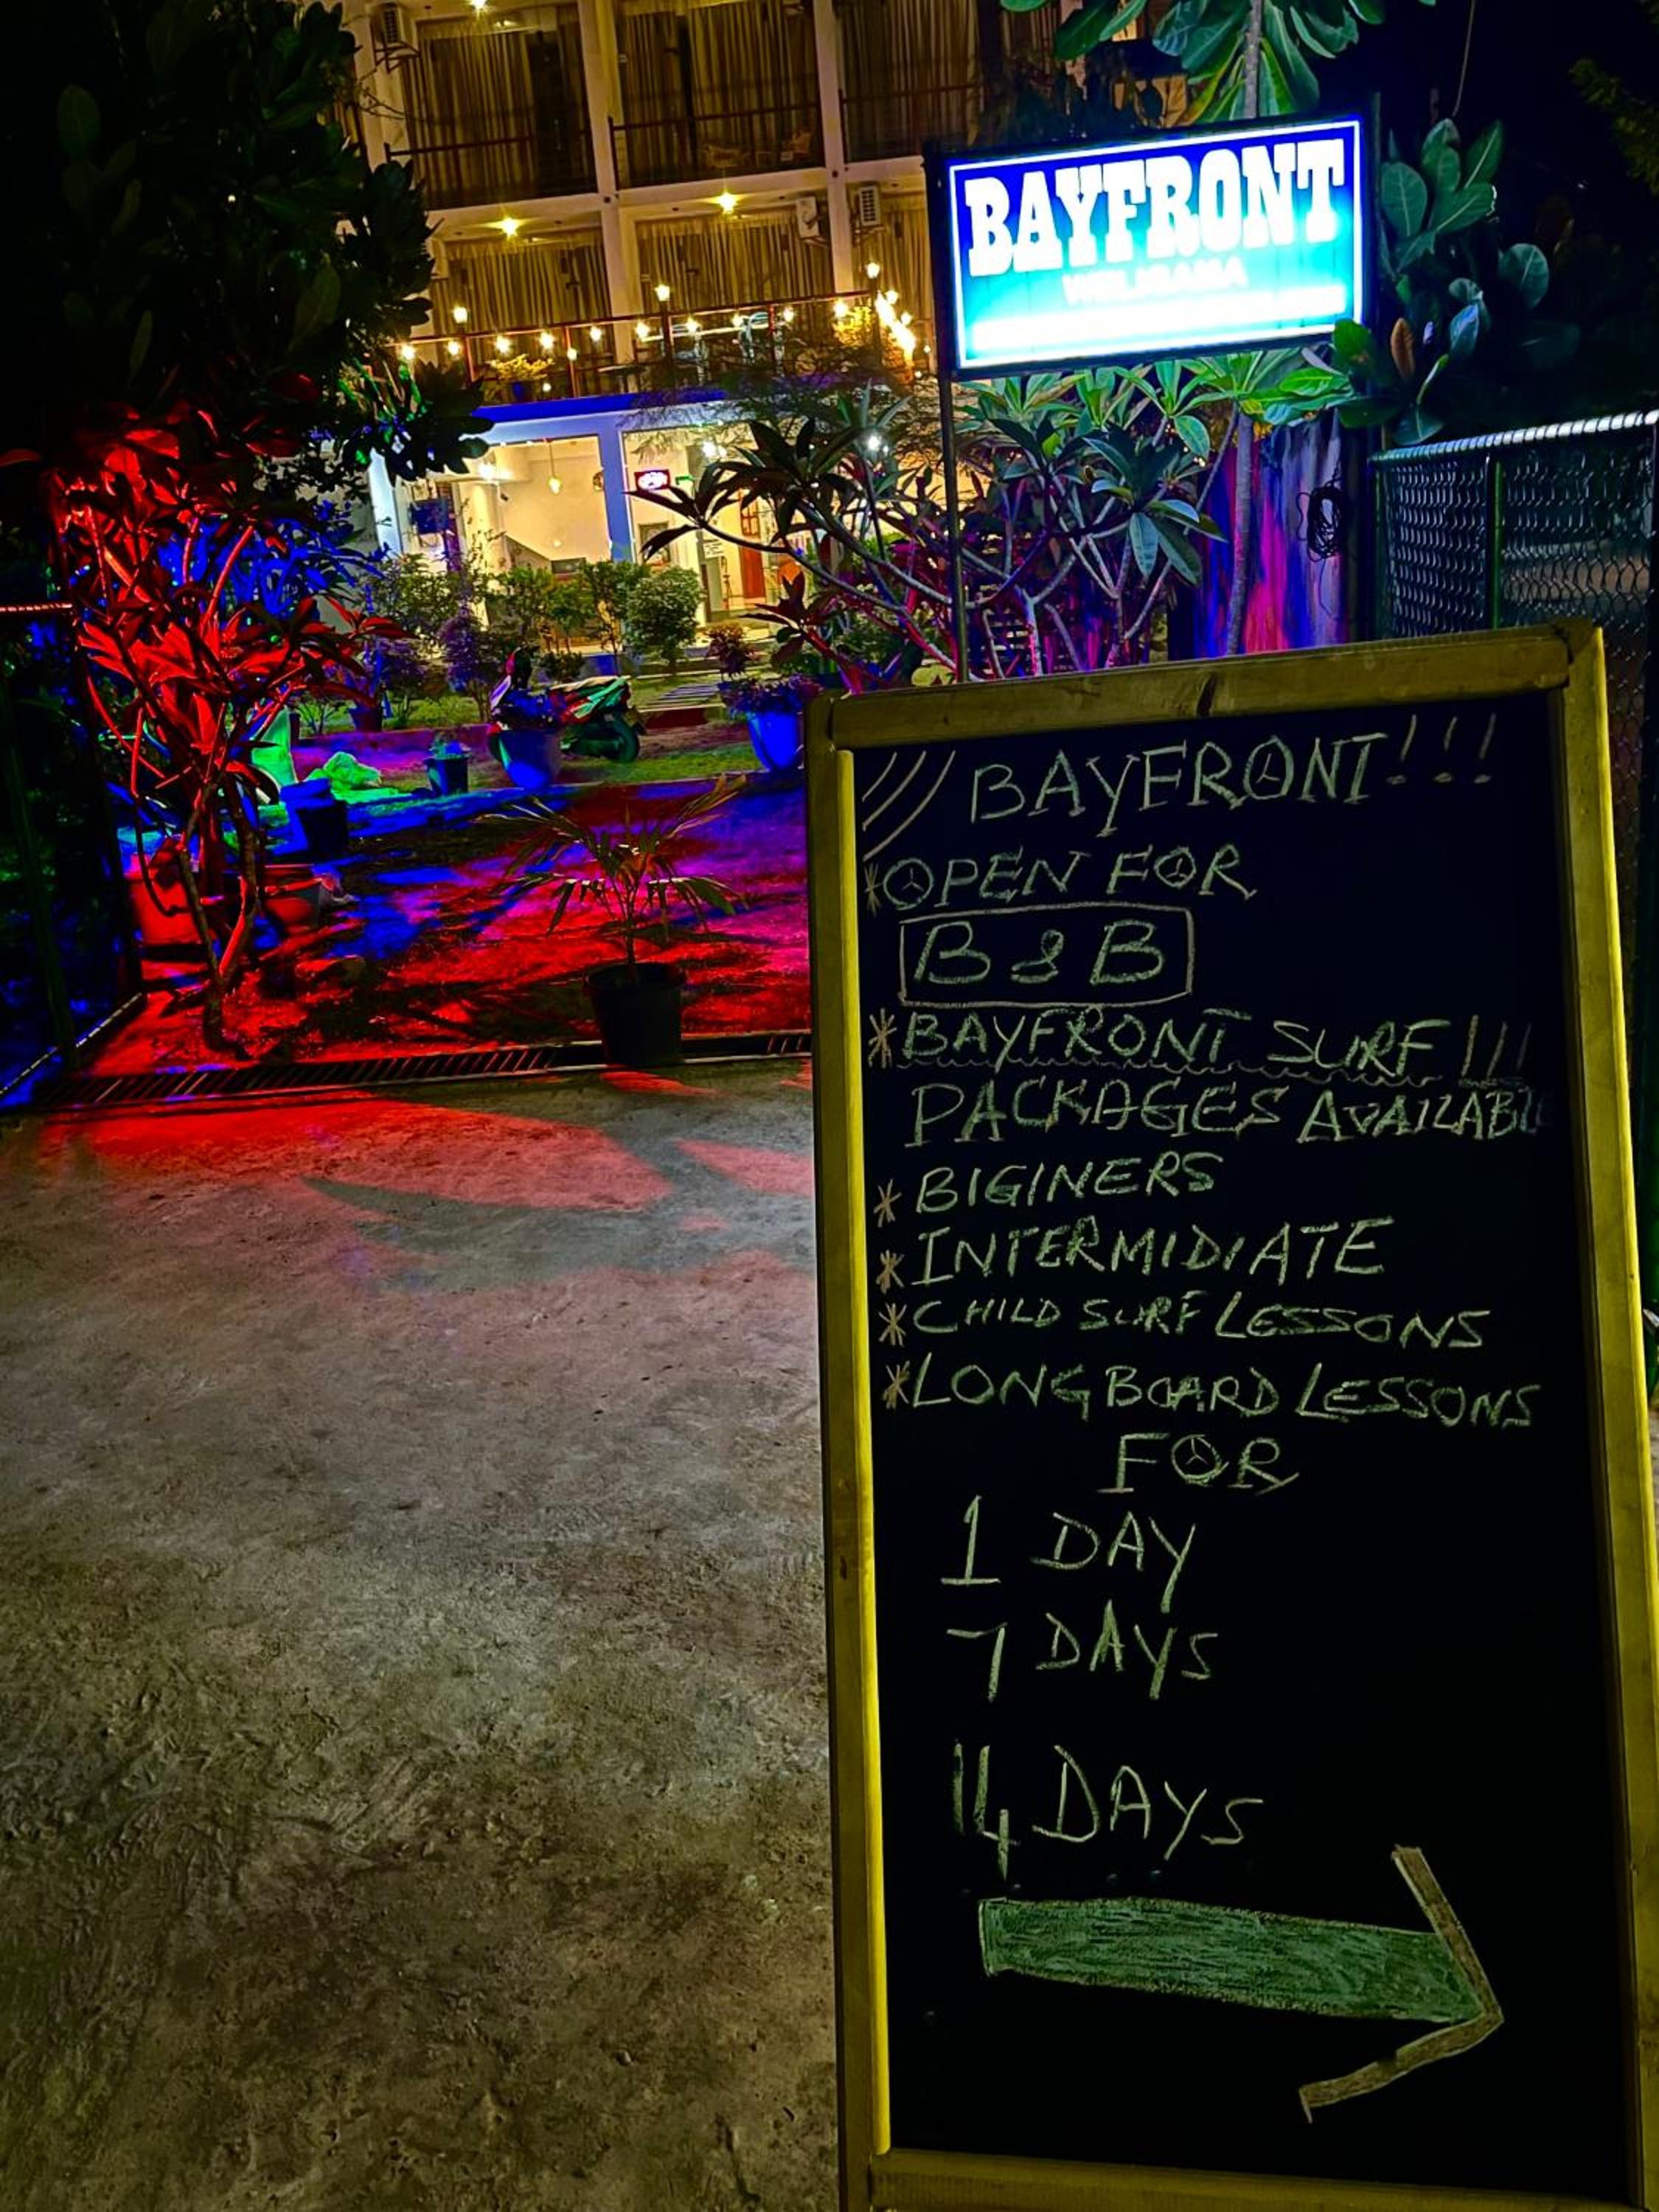 BAYFRONT
WELIGAMA
BAYFRONT!!!
*OPEN FOR
B & B
*BAYFRONT SURF!!!
PACKAGES AVAILABLE
*BIGINERS
*INTERMIDIATE
*CHILD SURF LESSONS
*LONG BOARD LESSONS
FOR
1 DAY
7 DAYS
14 DAYS